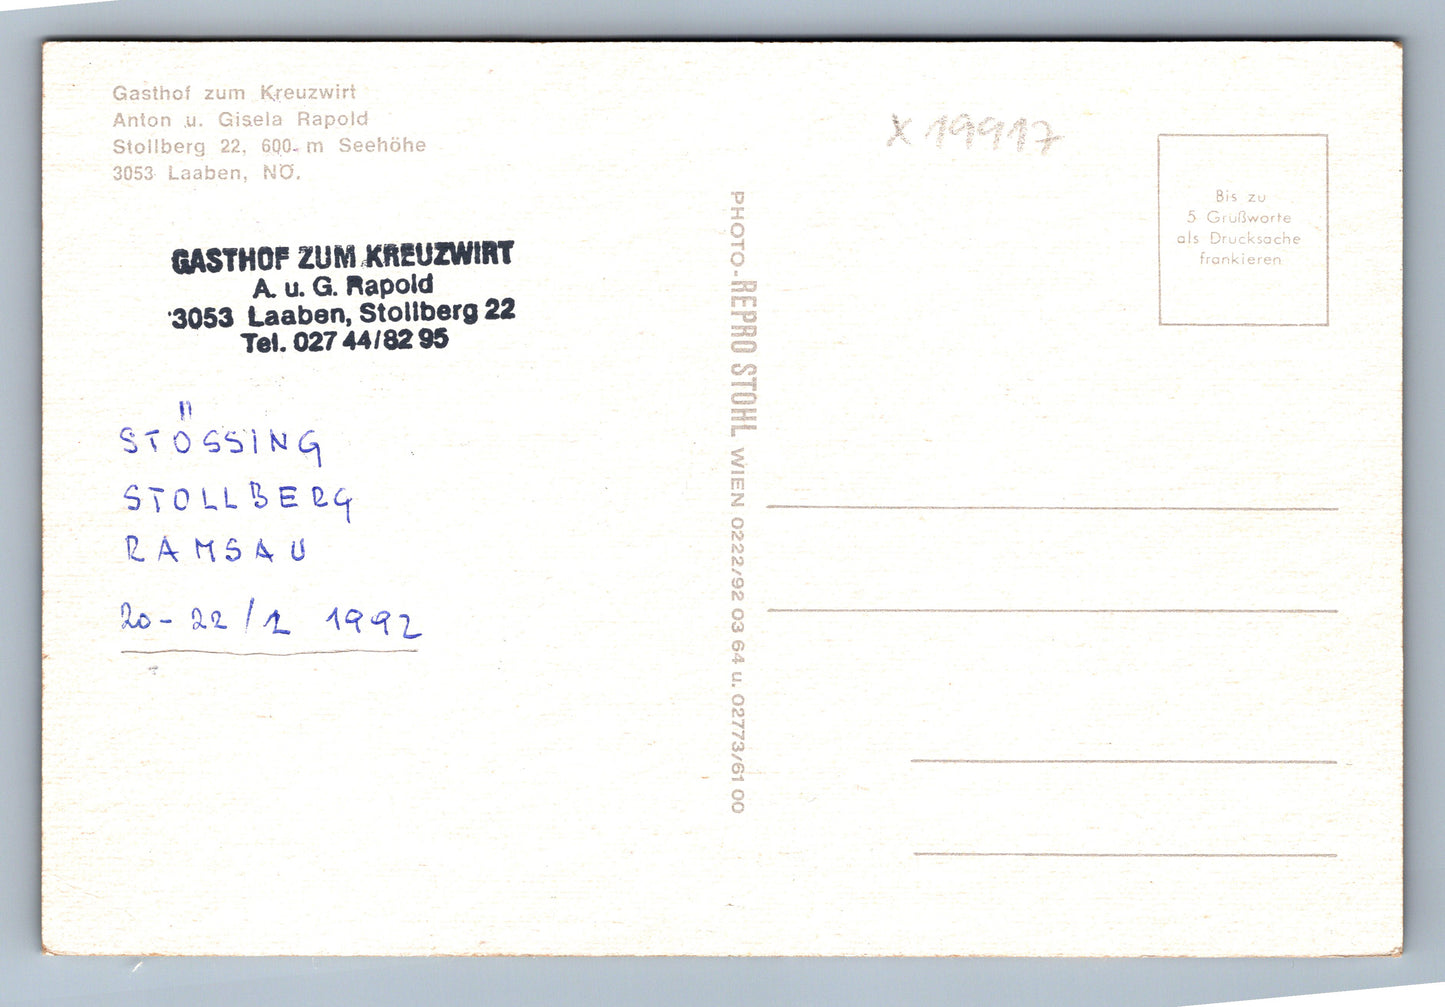 Gasthof zum Kreuzwirt
Anton u. Gisela Rapold
Stollberg 22, 600 m Seehöhe
3053 Laaben, NÖ.
GASTHOF ZUM KREUZWIRT
A. u. G. Rapold
3053 Laaben, Stollberg 22
Tel. 027 44/82 95
STÖSSING
STOLLBERG
RAMSAU
20-22/1 1992
PHOTO-REPRO STOHL WIEN 0222/92 03 64 u. 02773/61 00
X 19917
Bis zu
5 Grußworte
als Drucksache
frankieren